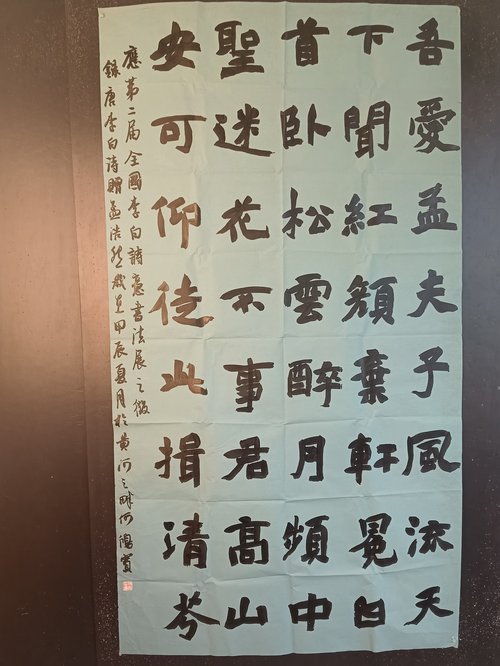 吾愛孟夫子風流天
下聞紅顏棄軒冕白
首卧松雲醉月頻中
聖迷花不事君高山
安可仰徒此揖清芬
應第二届全國李白詩意書法展之徵
録唐李白詩贈孟浩然歲在甲辰夏月於黄河之畔何鴻賓